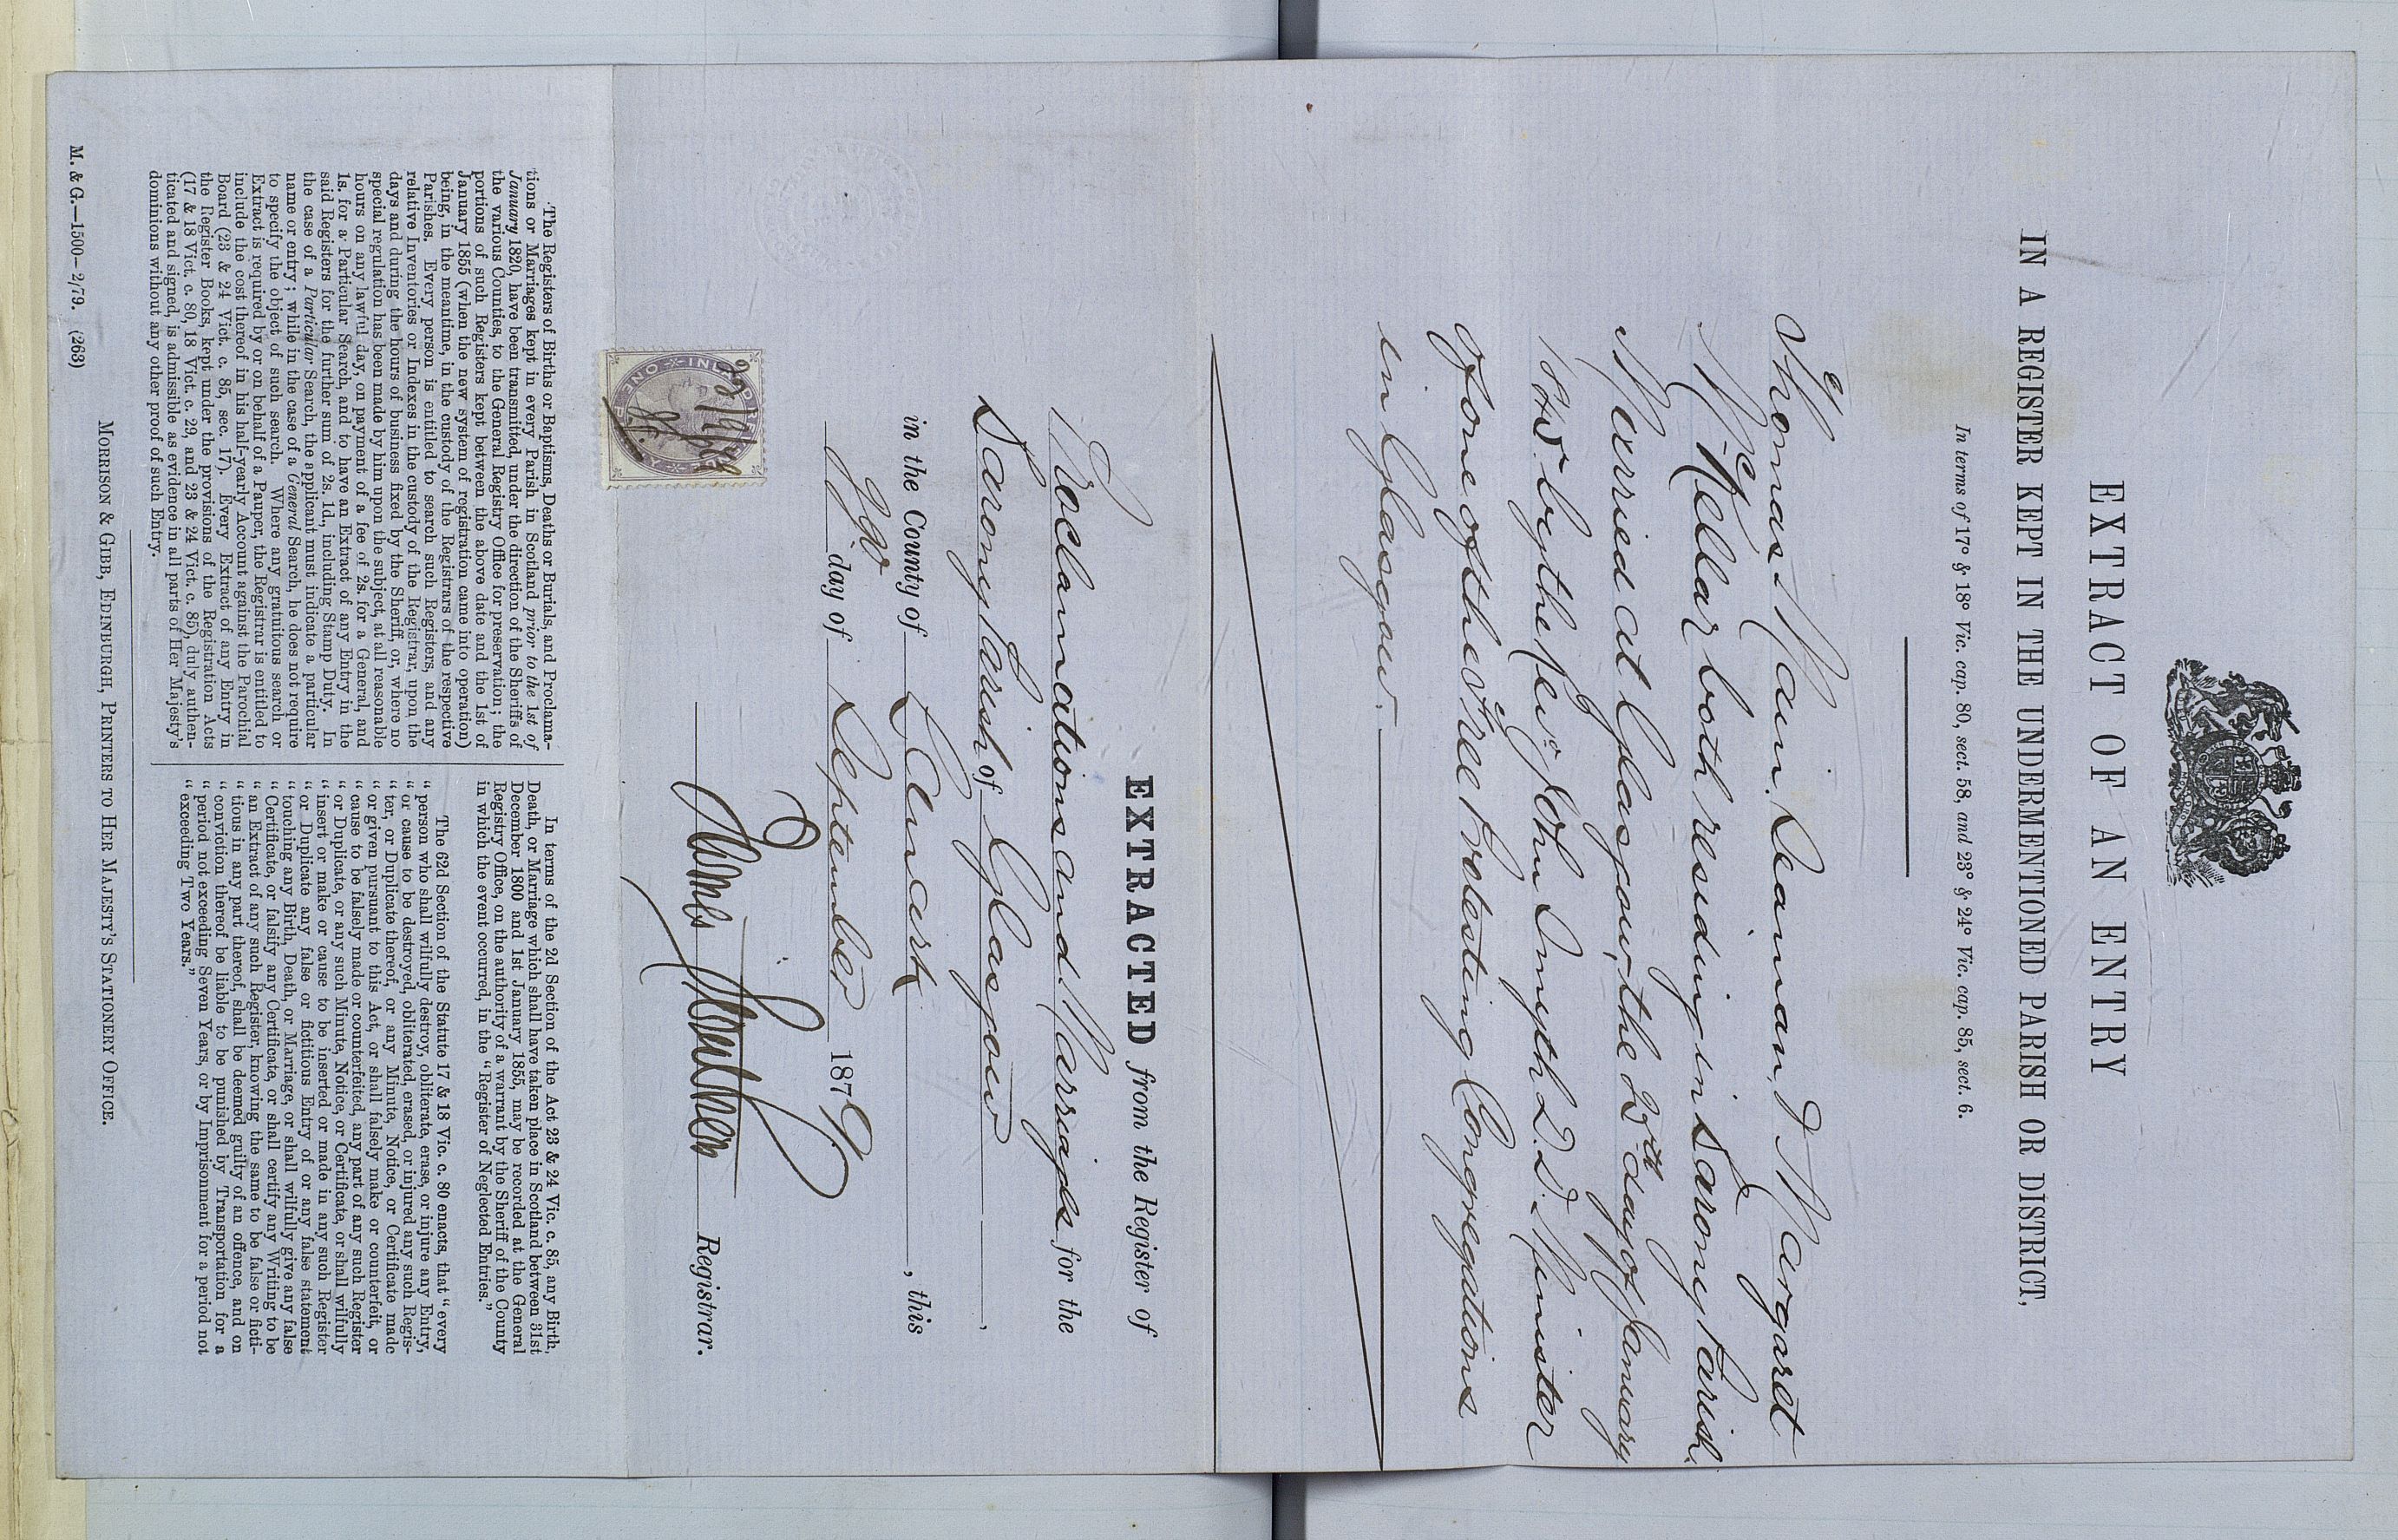 EXTRACT OF AN ENTRY
IN A REGISTER KEPT IN THE UNDERMENTIONED PARISH OR DISTRICT,
In terms of 17° & 18° Vic. cap. 80, sect. 58, and 23° & 24° Vic. cap. 85, sect. 6.
Thomas Main, Seaman, & Margaret
McKellar both residing in Barony Parish
Married at Glasgow, the 25th day of January
by the Revd. John Smyth D.D. Minister
of one of the Free Protesting Congregations
in Glasgow.
EXTRACTED from the Register of
Proclamations and Marriages for the
Barony Parish of Glasgow,
in the County of Lanark, this
day of September 1879
Registrar.
INLAND
ONE
The Registers of Births or Baptisms, Deaths or Burials, and Proclama-
tions or Marriages kept in every Parish in Scotland prior to the 1st of
January 1820, have been transmitted, under the direction of the Sheriffs of
the various Counties, to the General Registry Office for preservation; the
portions of such Registers kept between the above date and the 1st of
January 1855 (when the new system of registration came into operation)
being, in the meantime, in the custody of the Registrars of the respective
Parishes. Every person is entitled to search such Registers, and any
relative Inventories or Indexes in the custody of the Registrar, upon the
days and during the hours of business fixed by the Sheriff, or, where no
special regulation has been made by him upon the subject, at all reasonable
hours on any lawful day, on payment of a fee of 2s. for a General, and
1s. for a Particular Search, and to have an Extract of any Entry in the
said Registers for the further sum of 2s. 1d., including Stamp Duty. In
the case of a Particular Search, the applicant must indicate a particular
name or entry; while in the case of a General Search, he does not require
to specify the object of such search. Where any gratuitous search or
Extract is required by or on behalf of a Pauper, the Registrar is entitled to
include the cost thereof in his half-yearly Account against the Parochial
Board (23 & 24 Vict. c. 85, sec. 17). Every Extract of any Entry in
the Register Books, kept under the provisions of the Registration Acts
(17 & 18 Vict. c. 80, 18 Vict. c. 29, and 23 & 24 Vict. c. 85), duly authen-
ticated and signed, is admissible as evidence in all parts of Her Majesty's
dominions without any other proof of such Entry.
In terms of the 2d Section of the Act 23 & 24 Vic. c. 85, any Birth,
Death, or Marriage which shall have taken place in Scotland between 31st
December 1800 and 1st January 1855, may be recorded at the General
Registry Office, on the authority of a warrant by the Sheriff of the County
in which the event occurred, in the "Register of Neglected Entries."
The 62d Section of the Statute 17 & 18 Vic. c. 80 enacts, that "every
"person who shall wilfully destroy, obliterate, erase, or injure any Entry,
"or cause to be destroyed, obliterated, erased, or injured any such Regis-
"ter, or Duplicate thereof, or any Minute, Notice, or Certificate made
"or given pursuant to this Act, or shall falsely make or counterfeit, or
"cause to be falsely made or counterfeited, any part of any such Register
"or Duplicate, or any such Minute, Notice, or Certificate, or shall wilfully
"insert or make or cause to be inserted or made in any such Register
"or Duplicate any false or fictitious Entry of or any false statement
"touching any Birth, Death, or Marriage, or shall wilfully give any false
"Certificate, or falsify any Certificate, or shall certify any Writing to be
"an Extract of any such Register, knowing the same to be false or ficti-
"tions in any part thereof, shall be deemed guilty of an offence, and on
"conviction thereof be liable to be punished by Transportation for a
"period not exceeding Seven Years, or by Imprisonment for a period not
"exceeding Two Years."
MORRISON & GIBB, EDINBURGH, PRINTERS TO HER MAJESTY'S STATIONERY OFFICE.
M. & G.—1500—2/79. (263)